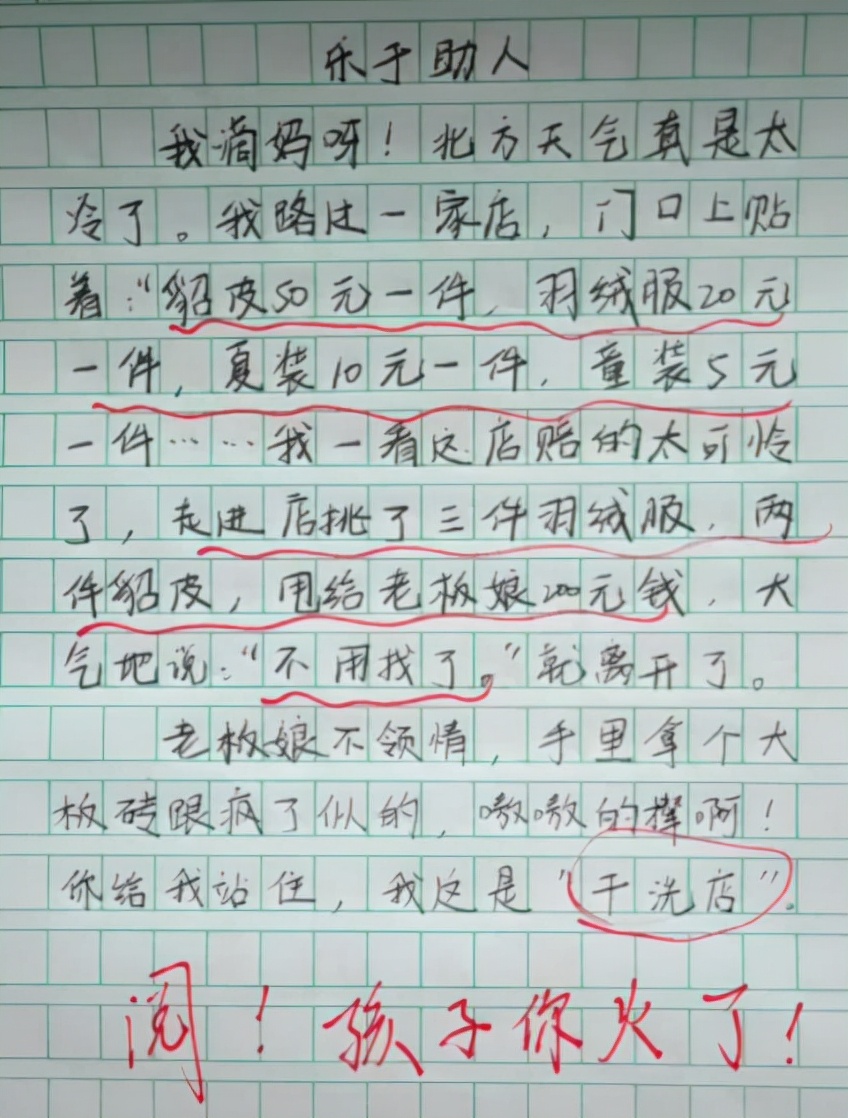 乐于助人
我滴妈呀！北方天气真是太
冷了。我路过一家店，门口上贴
着："貂皮50元一件，羽绒服20元
一件，夏装10元一件，童装5元
一件……我一看这店赔的太可怜
了，走进店挑了三件羽绒服，两
件貂皮，甩给老板娘200元钱，大
气地说："不用找了。"就离开了。
老板娘不领情，手里拿个大
板砖跟疯了似的，嗷嗷的撵啊！
你给我站住，我这是"干洗店"。
阅！孩子你火了！